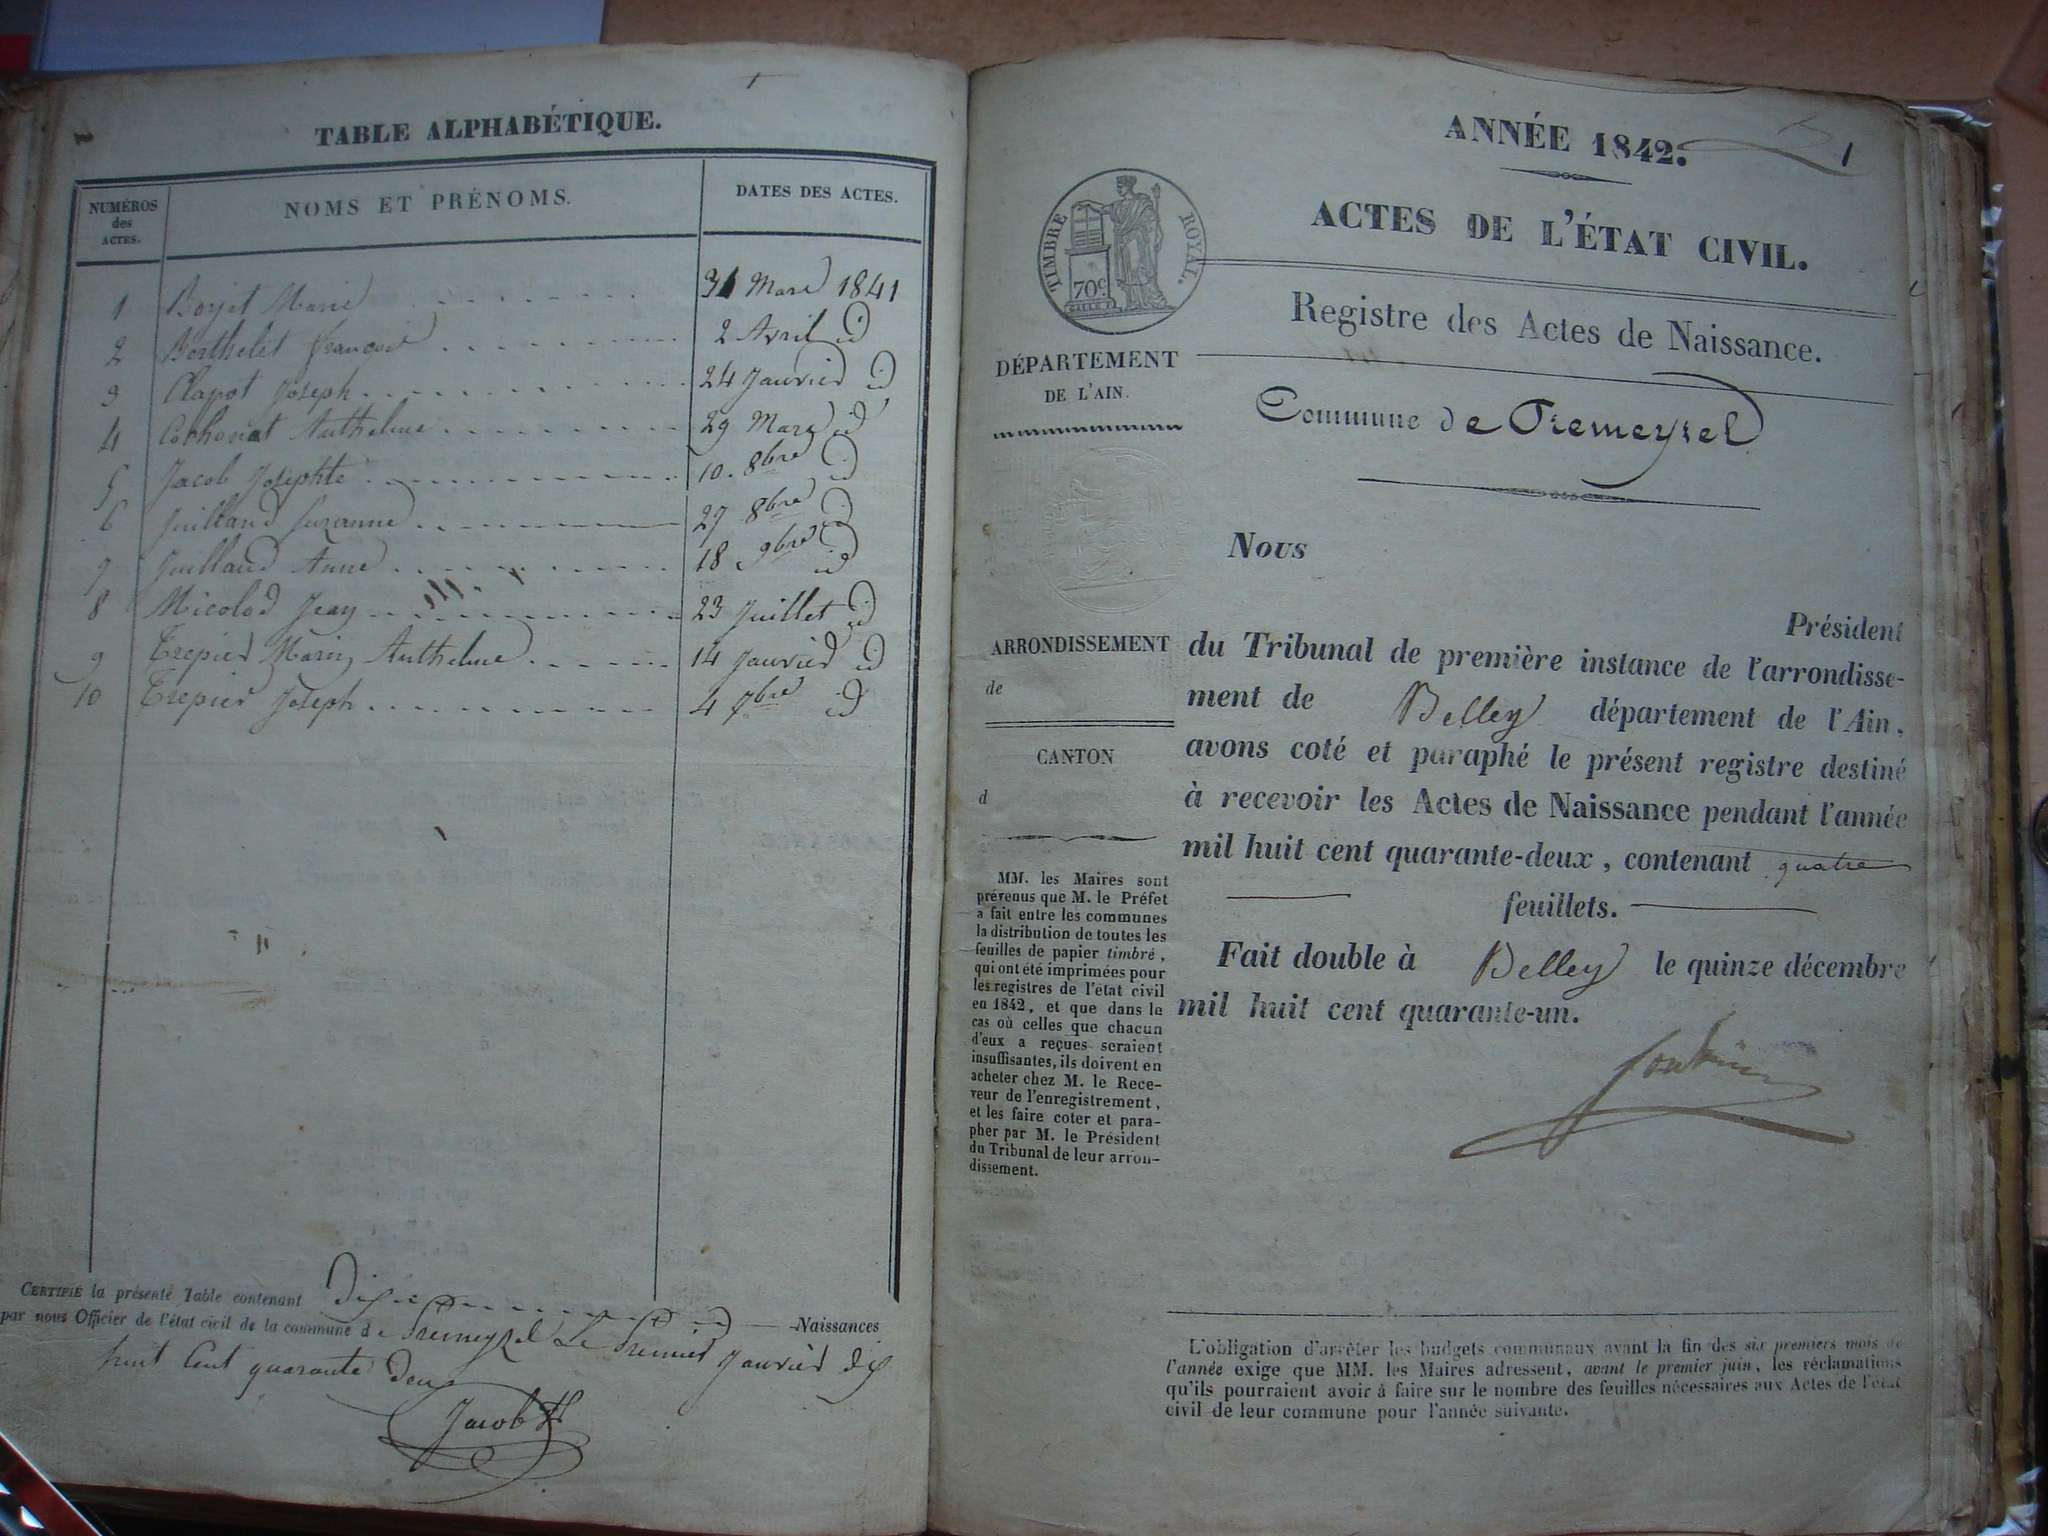 TABLE ALPHABÉTIQUE.
NUMÉROS
des
ACTES.
NOMS ET PRÉNOMS.
DATES DES ACTES.
1 Borjet Marie 31 Mars 1841
2 Berthelet françois 2 Avril id
3 Clapot Joseph 24 Janvier id
4 Cochonat Anthelme 29 Mars id
5 Jacob Josephte 10. 8bre id
6 Juilland Suzanne 27 8bre id
7 Juilland Anne 18 9bre id
8 Nicolod Jean 23 Juillet id
9 Trepier Marie Anthelme 14 Janvier id
10 Trepier Joseph 4 7bre id
CERTIFIÉ la présente Table contenant Dix Naissances
par nous Officier de l'état civil de la commune de Prémeyzel Le Premier Janvier dix
huit Cent quarante deux
Jacob
ANNÉE 1842.
1
ACTES DE L'ÉTAT CIVIL.
TIMBRE ROYAL.
70c
Registre des Actes de Naissance.
DÉPARTEMENT
DE L'AIN.
Commune de Premeyzel
Nous
Président
ARRONDISSEMENT
de
CANTON
d
du Tribunal de première instance de l'arrondisse-
ment de Belley département de l'Ain,
avons coté et paraphé le présent registre destiné
à recevoir les Actes de Naissance pendant l'année
mil huit cent quarante-deux, contenant quatre
feuillets.
Fait double à Belley le quinze décembre
mil huit cent quarante-un.
MM. les Maires sont
prévenus que M. le Préfet
a fait entre les communes
la distribution de toutes les
feuilles de papier timbré,
qui ont été imprimées pour
les registres de l'état civil
en 1842, et que dans le
cas où celles que chacun
d'eux a reçues seraient
insuffisantes, ils doivent en
acheter chez M. le Rece-
veur de l'enregistrement,
et les faire coter et para-
pher par M. le Président
du Tribunal de leur arron-
dissement.
L'obligation d'arrêter les budgets communaux avant la fin des six premiers mois de
l'année exige que MM. les Maires adressent, avant le premier juin, les réclamations
qu'ils pourraient avoir à faire sur le nombre des feuilles nécessaires aux Actes de l'état
civil de leur commune pour l'année suivante.